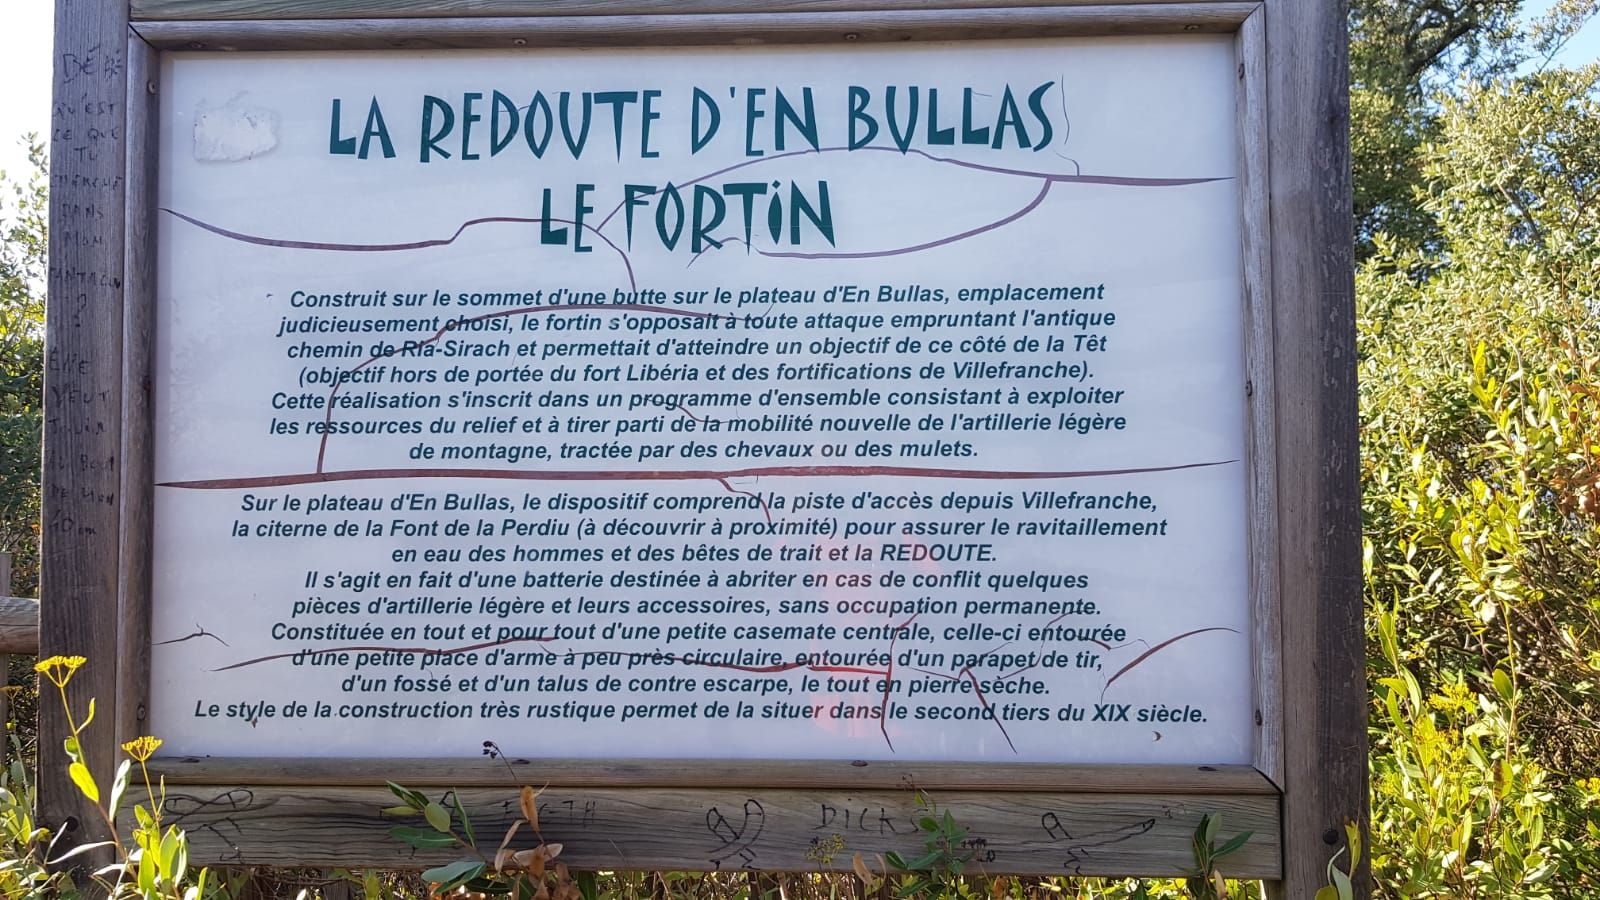 LA REDOUTE D'EN BULLAS
LE FORTiN
Construit sur le sommet d'une butte sur le plateau d'En Bullas, emplacement
judicieusement choisi, le fortin s'opposait à toute attaque empruntant l'antique
chemin de Ria-Sirach et permettait d'atteindre un objectif de ce côté de la Têt
(objectif hors de portée du fort Libéria et des fortifications de Villefranche).
Cette réalisation s'inscrit dans un programme d'ensemble consistant à exploiter
les ressources du relief et à tirer parti de la mobilité nouvelle de l'artillerie légère
de montagne, tractée par des chevaux ou des mulets.
Sur le plateau d'En Bullas, le dispositif comprend la piste d'accès depuis Villefranche,
la citerne de la Font de la Perdiu (à découvrir à proximité) pour assurer le ravitaillement
en eau des hommes et des bêtes de trait et la REDOUTE.
Il s'agit en fait d'une batterie destinée à abriter en cas de conflit quelques
pièces d'artillerie légère et leurs accessoires, sans occupation permanente.
Constituée en tout et pour tout d'une petite casemate centrale, celle-ci entourée
d'une petite place d'arme à peu près circulaire, entourée d'un parapet de tir,
d'un fossé et d'un talus de contre escarpe, le tout en pierre sèche.
Le style de la construction très rustique permet de la situer dans le second tiers du XIX siècle.
QU'EST
CE QUE
TU
CHERCHE
DANS
MON
?
VEUT
DE MON
DICKS